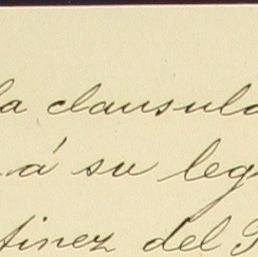 la clausula
á su leg
tinez del